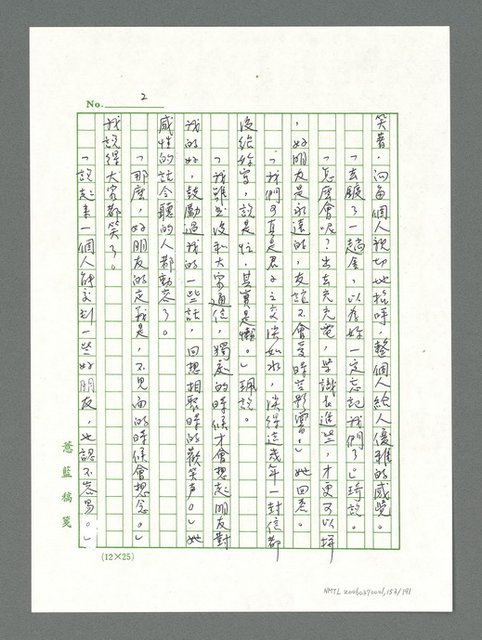 No. 2
笑著,向每個人親切地招呼,整個人給人優雅的感覺。
「去鍍了一趟金,以為妳一定忘記我們了」琦說。
「怎麼會呢?出去充充電,學識長進些,才更可以拼
,好朋友是永遠的,友誼不會受時空影響。」她回答。
「我們可真是君子之交淡如水,淡得這幾年一封信都
沒給妳寫,說是忙,其實是懶。」珮說。
「我雖然沒和大家通信,獨處的時候才會想起朋友對
我的好,鼓勵過我的一些話,回想相聚時的歡笑聲。」她
感性的話令聽的人都動容了。
「那麼,好朋友的定義是,不見面的時候會想念。」
我說得大家都笑了。
「說起來一個人能交到一些好朋友,也認不容易。」
慧藍稿箋
(12×25)
NMTL 153/191